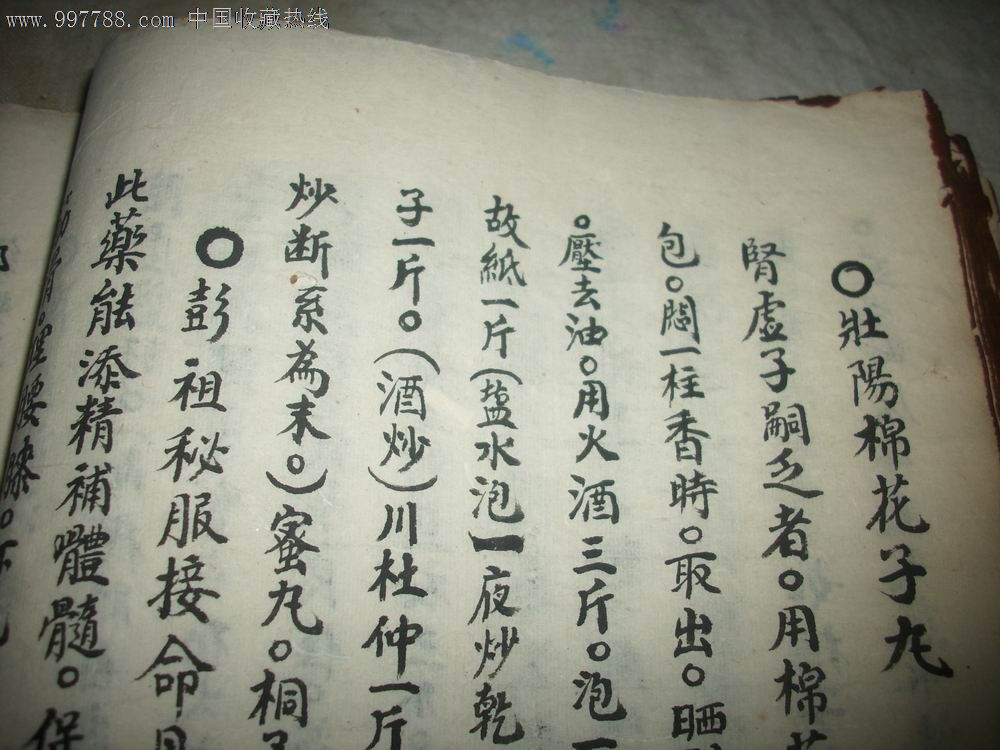 www.997788.com 中国收藏热线
○壯陽棉花子丸
腎虛子嗣乏者。用棉花
包。悶一柱香時。取出。晒
。壓去油。用火酒三斤。泡一
故紙一斤(盐水泡一夜炒乾
子一斤。(酒炒)川杜仲一斤
炒断系為末。)蜜丸。桐子
○彭祖秘服接命
此藥能添精補體髓。保
腰膝。